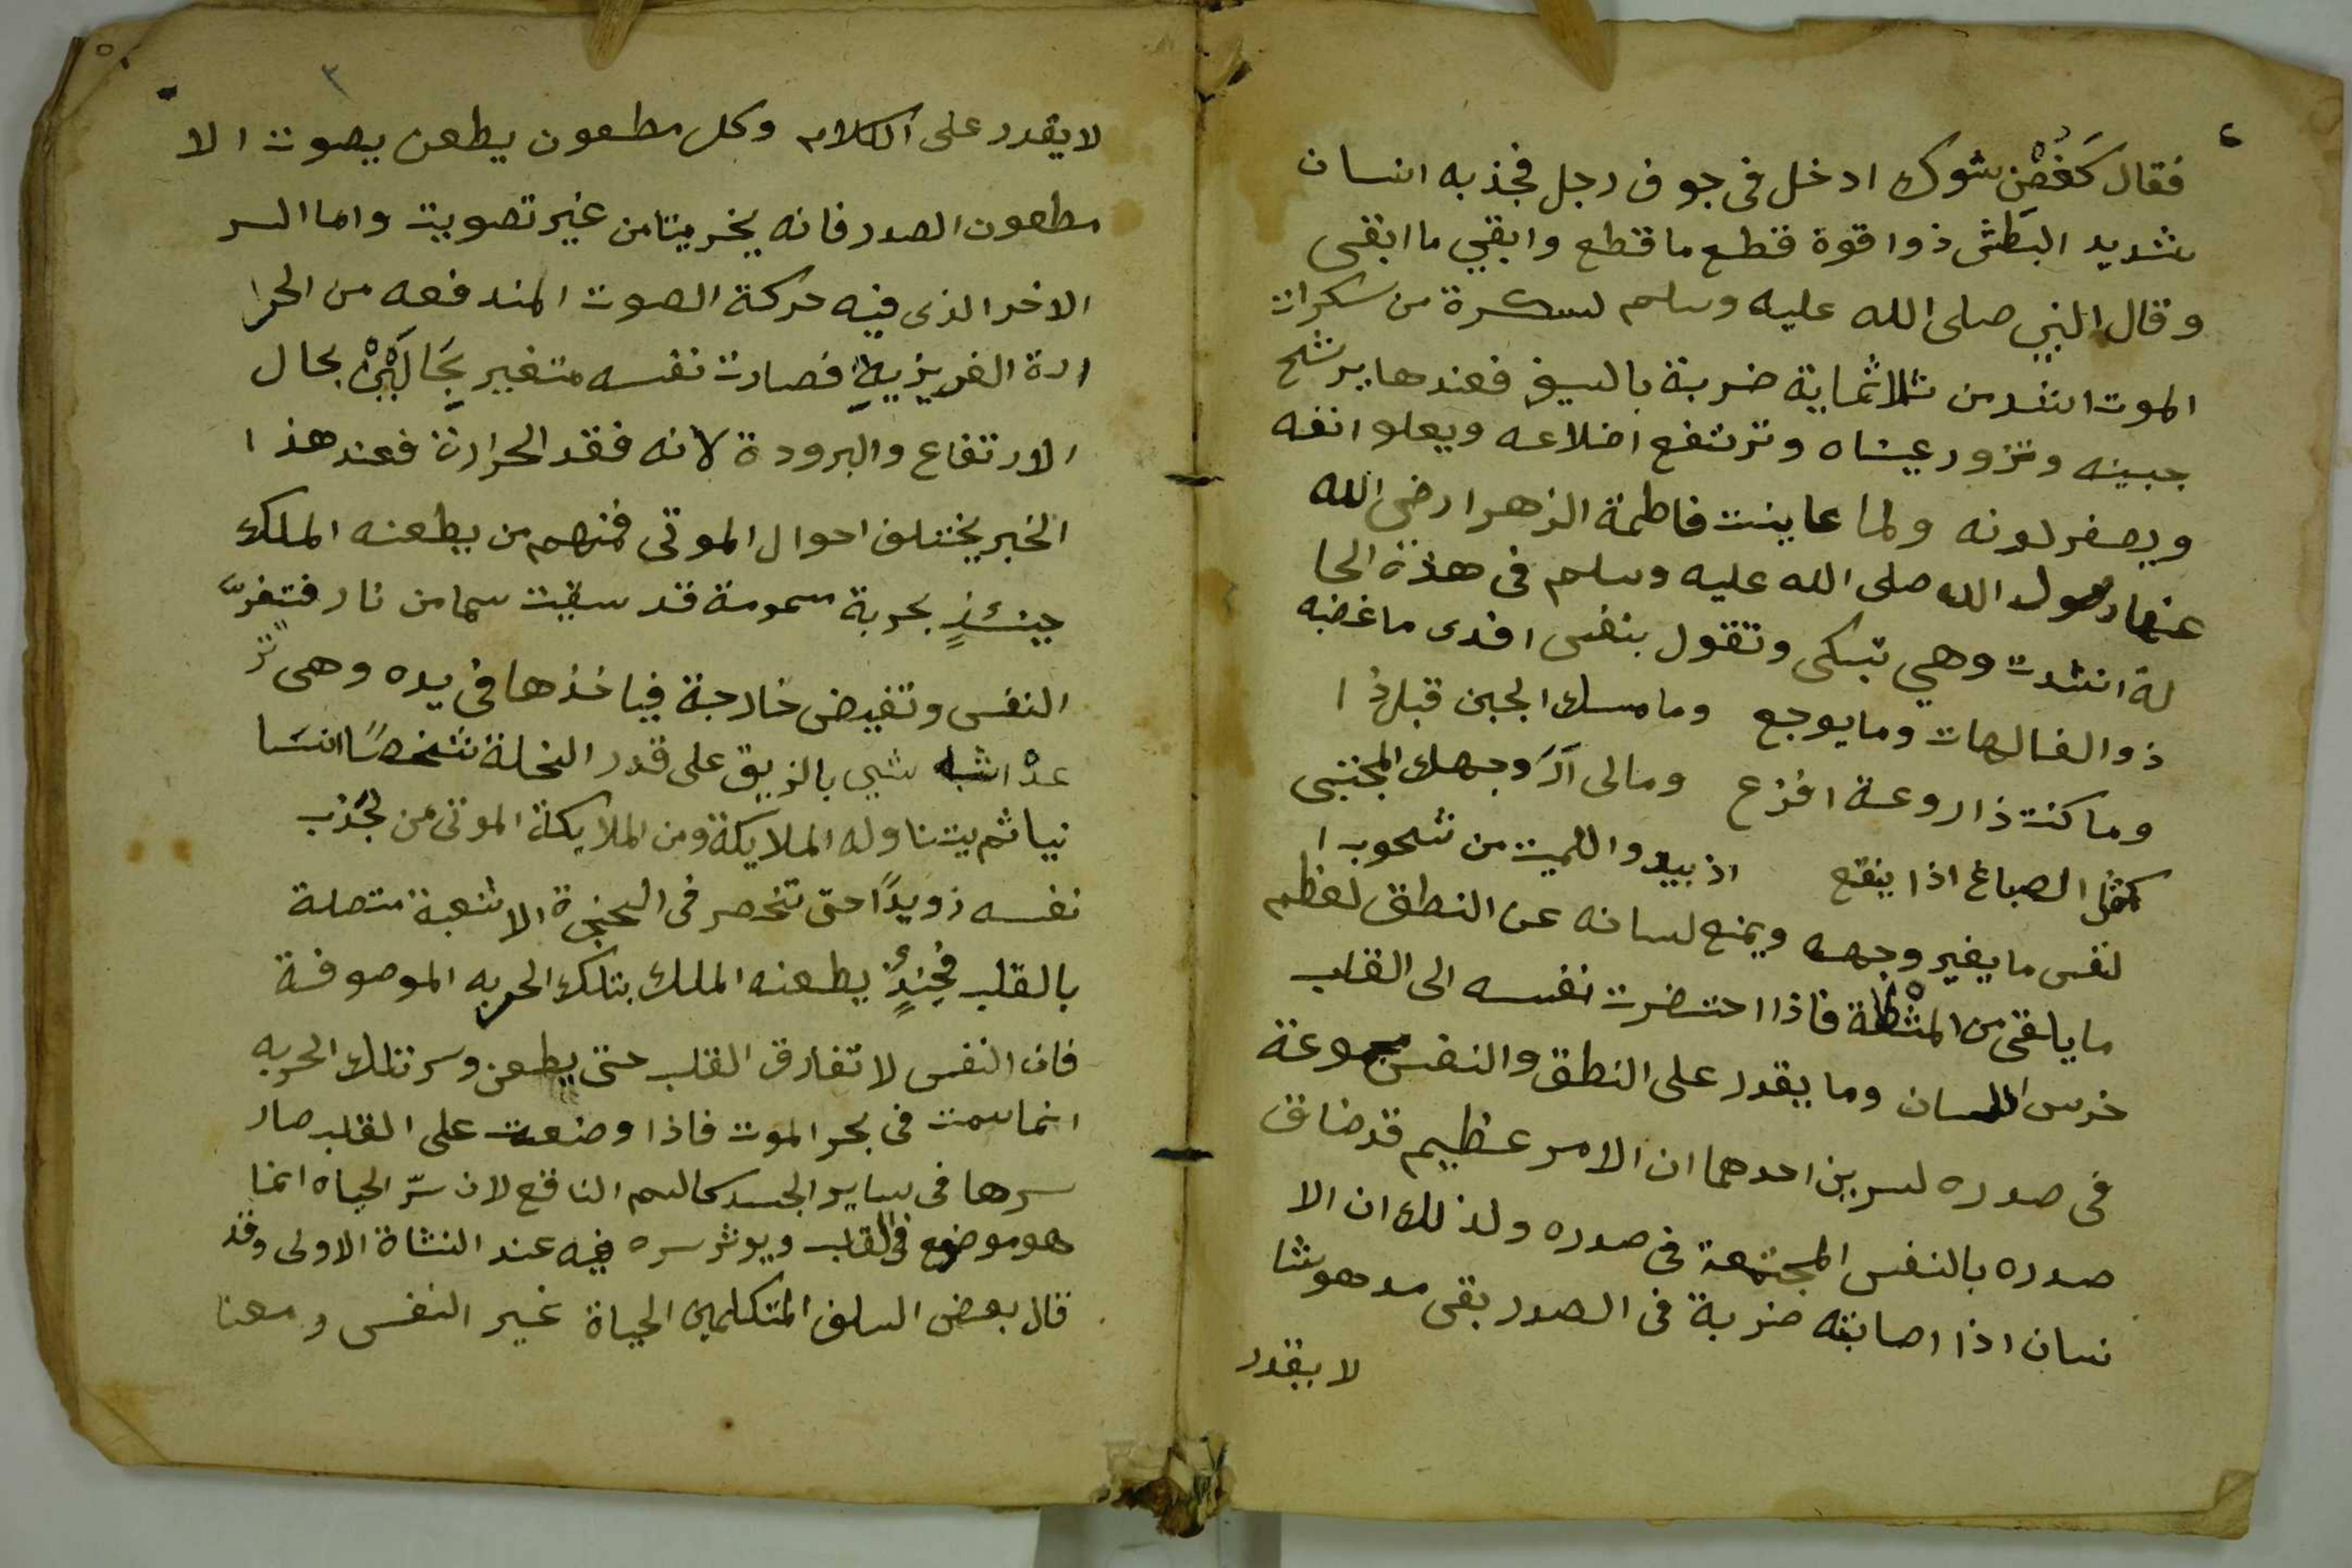 ٤
فقال كَغُصْنِ شوك ادخل فى جوف رجل فجذبه انسان
شديد البَطش ذوا قوة فقطع ما قطع وابقي ما ابقى
وقال النبي صلى الله عليه وسلم لسكرة من سكرات
الموت اشد من ثلاثماية ضربة بالسيف فعندها يرشح
جبينه وتزور عيناه وترتفع اضلاعه ويعلوا نفسه
ويصفر لونه ولما عاينت فاطمة الزهرا رضي الله
عنها رسول الله صلى الله عليه وسلم فى هذة الحا
لة انشدت وهي تبكى وتقول بنفسى افدى ما غضبه
ذوا لغالهات وما يوجع وما مسك الجبن قبل ذا
وما كنت ذا روعة افزع ومالى آرَ وجهك المجتبى
كمثل الصباغ اذا ينقع اذ يبدوا الميت من شحوب ا
لنفس ما يغير وجهه ويمنع لسانه عن النطق لعظم
ما يلقى من فاذا احتضرت نفسه الى القلب
خرس اللسان وما يقدر على النطق والنفس مجموعة
فى صدره لسرين احدهما ان الامر عظيم قد ضاق
صدره بالنفس المجتمعة فى صدره ولذلك ان الا
نسان اذا اصابته ضربة فى الصدر بقى مدهوشا
لا يقدر
٣
لا يقدر على الكلام وكل مطعون يطعن يصوت الا
مطعون الصدر فانه يخر ميتا من غير تصويت واما السر
الاخر الذى فيه حركة الصوت المندفعه من الحرا
ارة الغريزية فصارت نفسه متغير بحَالَيْنْ بحال
الارتفاع والبرودة لانه فقد الحرارة فعند هذا
الخبر يختلف احوال الموتى فمنهم من يطعنه الملك
حينئذٍ بحربة مسمومة قد سقيت سما من نار فتفرّ
النفس وتفيض خارجة فياخذها فى يده وهى تر
عدْ اشبه شيى بالزيبق على قدر النخلة شخصًا انسَا
نيا ثم يتناوله الملايكة ومن الملايكة الموتى من تجذب
نفسه رويدًا حتى تنحصر فى الحنجرة الا شعبة متصلة
بالقلب فحينئذٍ يطعنه الملك بتلك الحربه الموصوفة
فان النفس لا تفارق القلب حتى يطعن وسر تلك الحربه
انما سمت فى بحر الموت فاذا وضعت على القلب صار
سرها فى ساير الجسد كالسم الناقع لان سرّ الحياه انما
هو موضع فى القلب ويوثر سره فيه عند النشاة الاولى وقد
قال بعض السلف المتكلمين الحياة غير النفس ومعنا